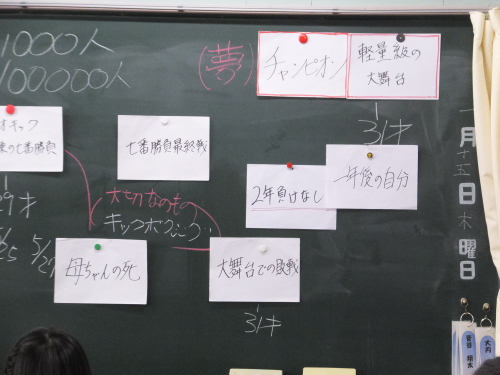 1000人
100000人
(夢)
チャンピオン
軽量級の
大舞台
31才
オキック
七番勝負
七番勝負最終戦
2年負けなし
一年後の自分
大切なもの
キックボクシング
9才
5/25 5/29
母ちゃんの死
大舞台での敗戦
31才
一月十五日木曜日
大内